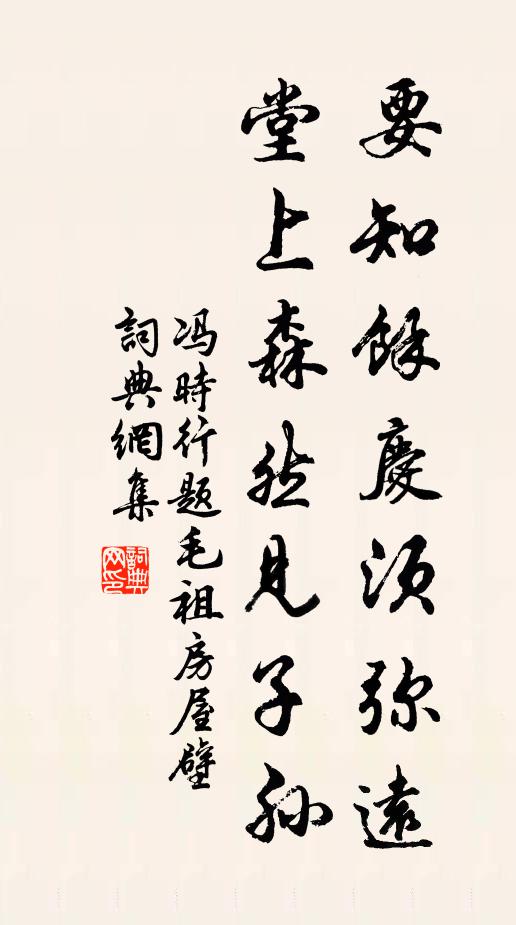 要知餘慶須弥遠
堂上森然見子孙
冯時行题毛祖房屋壁
詞典網集
詞典网印